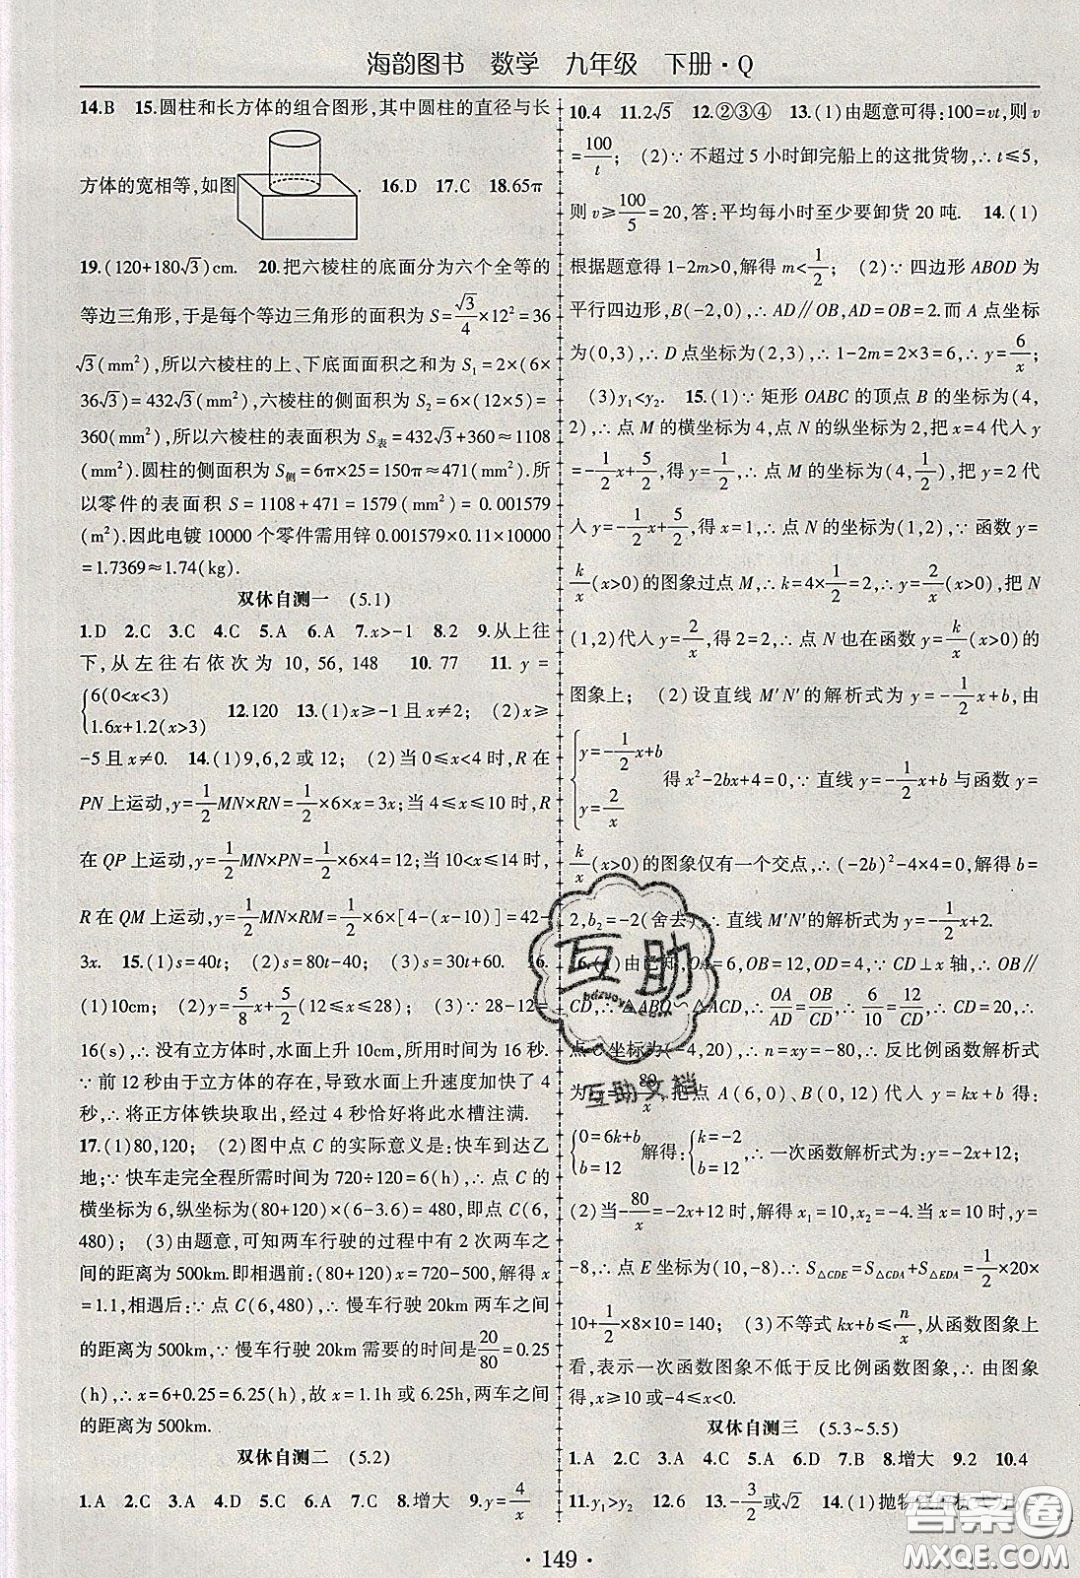 海韵图书 数学 九年级 下册·Q
14.B 15.圆柱和长方体的组合图形,其中圆柱的直径与长
方体的宽相等,如图 . 16.D 17.C 18.65π
19.(120+180√3)cm. 20.把六棱柱的底面分为六个全等的
等边三角形,于是每个等边三角形的面积为 S=√3/4×12²=36
√3(mm²),所以六棱柱的上、下底面面积之和为 S₁=2×(6×
36√3)=432√3(mm²),六棱柱的侧面积 S₂=6×(12×5)=
360(mm²).所以六棱柱的表面积 S表=432√3+360≈1108
(mm²).圆柱的侧面积 S侧=6π×25=150π≈471(mm²).所
以零件的表面积 S=1108+471=1579(mm²)=0.001579
(m²).因此电镀 10000 个零件需用锌 0.001579×0.11×10000
=1.7369≈1.74(kg).
双休自测一 (5.1)
1.D 2.C 3.C 4.C 5.A 6.A 7.x>-1 8.2 9.从上往
下,从左往右依次为 10,56,148 10.77 11.y=
{6(0<x<3)
1.6x+1.2(x>3) 12.120 13.(1)x≥-1且 x≠2; (2)x≥
-5且 x≠0. 14.(1)9,6,2或12; (2)当 0≤x≤4时,R 在
PN 上运动,y=1/2MN×RN=1/2×6×x=3x;当 4≤x≤10 时,R
在 QP 上运动,y=1/2MN×PN=1/2×6×4=12;当 10<x≤14时,
R 在 QM 上运动,y=1/2MN×RM=1/2×6×[4-(x-10)]=42-
3x. 15.(1)s=40t; (2)s=80t-40; (3)s=40t+60. 16.
(1)10cm; (2)y=5/8x+5/2(12≤x≤28); (3)∵28-12=
16(s),∴没有立方体时,水面上升 10cm,所用时间为 16 秒.
∵前 12秒由于立方体的存在,导致水面上升速度加快了 4
秒,∴将正方体铁块取出,经过 4 秒恰好将此水槽注满.
17.(1)80,120; (2)图中点 C 的实际意义是:快车到达乙
地;∵快车走完全程所需时间为 720÷120=6(h),∴点 C 的
横坐标为 6,纵坐标为(80+120)×(6-3.6)=480,即点 C(6,
480); (3)由题意,可知两车行驶的过程中有 2 次两车之
间的距离为 500km.即相遇前:(80+120)x=720-500,解得 x
=1.1,相遇后:∵点 C(6,480),∴慢车行驶 20km 两车之间
的距离为 500km,∵慢车行驶 20km 需要的时间是20/80=0.25
(h),∴x=6+0.25=6.25(h),故 x=1.1h 或 6.25h,两车之间
的距离为 500km.
双休自测二 (5.2)
1.A 2.C 3.A 4.D 5.B 6.C 7.C 8.增大 9.y=4/x
10.4 11.2√5 12.②③④ 13.(1)由题意可得:100=vt,则 v
=100/t; (2)∵不超过 5 小时卸完船上的这批货物,∴t≤5,
则 v≥100/5=20,答:平均每小时至少要卸货 20 吨. 14.(1)
根据题意得 1-2m>0,解得 m<1/2; (2)∵四边形 ABOD 为
平行四边形,B(-2,0),∴AD∥OB,AD=OB=2.而 A 点坐标
为(0,3),∴D 点坐标为(2,3),∴1-2m=2×3=6,∴y=6/x;
(3)y₁<y₂. 15.(1)∵矩形 OABC 的顶点 B 的坐标为(4,
2),∴点 M 的横坐标为 4,点 N 的纵坐标为 2,把 x=4 代入 y
=-1/2x+5/2,得 y=1/2,∴点 M 的坐标为(4,1/2),把 y=2 代
入 y=-1/2x+5/2,得 x=1,∴点 N 的坐标为(1,2),∵函数 y=
k/x(x>0)的图象过点 M,∴k=4×1/2=2,∴y=2/x(x>0),把 N
(1,2)代入 y=2/x,得 2=2,∴点 N 也在函数 y=k/x(x>0)的
图象上; (2)设直线 M′N′的解析式为 y=-1/2x+b,由
{y=-1/2x+b
y=2/x 得 x²-2bx+4=0,∵直线 y=-1/2x+b 与函数 y=
k/x(x>0)的图象仅有一个交点,∴(-2b)²-4×4=0,解得 b=
2,b₂=-2(舍去),∴直线 M′N′的解析式为 y=-1/2x+2.
16.(1)由已知,OA=6,OB=12,OD=4,∵CD⊥x 轴,∴OB∥
CD,∴△ABO∽△ACD,∴OA/AD=OB/CD,∴6/10=12/CD,∴CD=20,∴
点 C 坐标为(-4,20),∴n=xy=-80,∴反比例函数解析式
为 y=-80/x,把点 A(6,0)、B(0,12)代入 y=kx+b 得:
{0=6k+b
b=12 解得:{k=-2
b=12 ,∴一次函数解析式为:y=-2x+12;
(2)当-80/x=-2x+12时,解得 x₁=10,x₂=-4.当 x=10 时,y=
-8,∴点 E 坐标为(10,-8).∴S△CDE=S△CDA+S△EDA=1/2×20×
10+1/2×8×10=140; (3)不等式 kx+b≤n/x,从函数图象上
看,表示一次函数图象不低于反比例函数图象,∴由图象
得,x≥10或-4≤x<0.
双休自测三 (5.3~5.5)
1.A 2.C 3.C 4.A 5.A 6.D 7.B 8.增大 9.2 10.4
11.y₁>y₂ 12.6 13.-3/2或√2 14.(1)抛物
· 149 ·
互助
bdzuoye.com
互助文档
答案圈
MXQE.COM